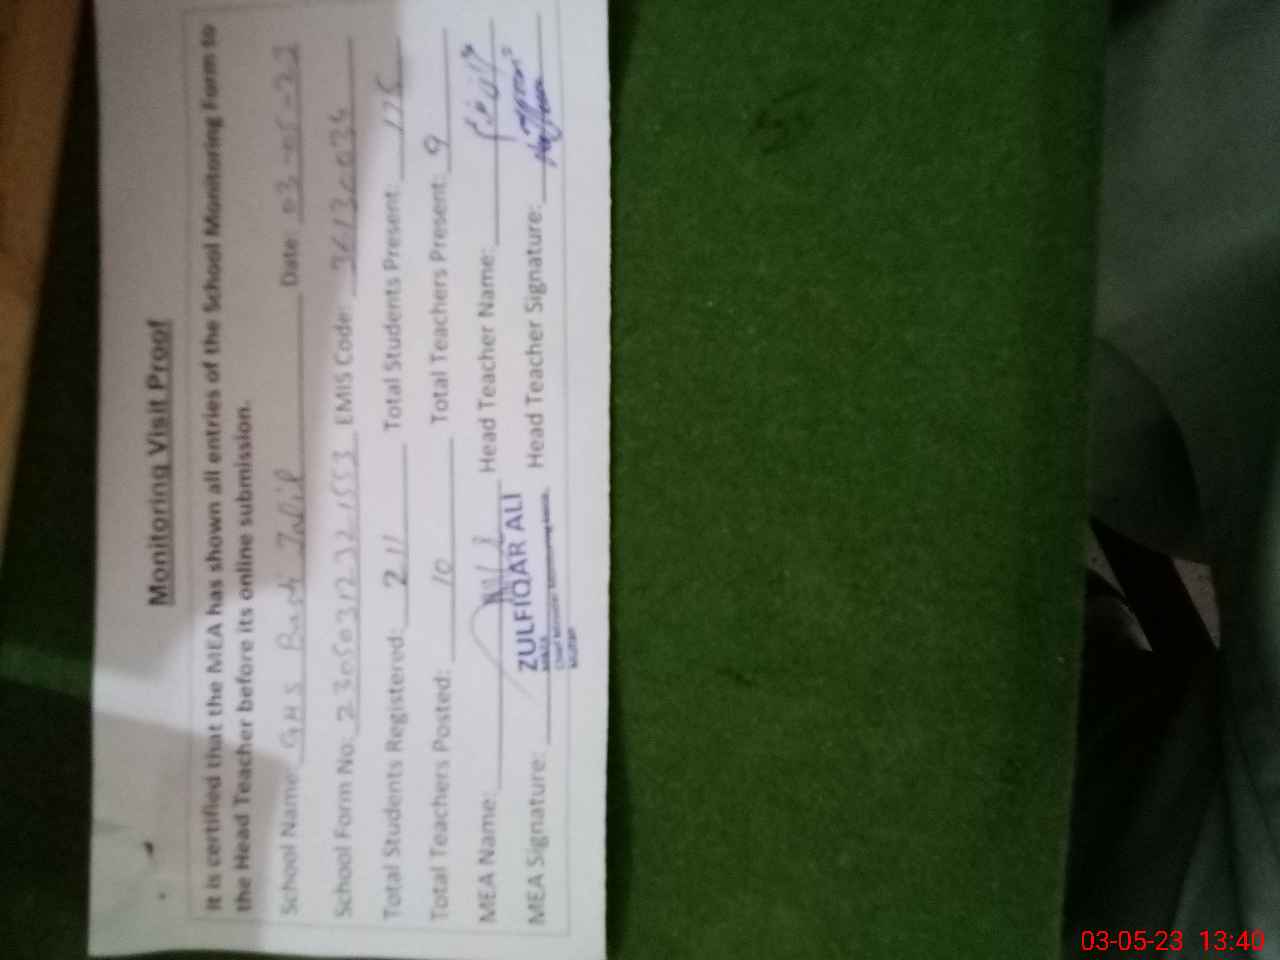 Monitoring Visit Proof
It is certified that the MEA has shown all entries of the School Monitoring Form to
the Head Teacher before its online submission.
School Name: GHS Basti Jalil Date: 03-05-23
School Form No: 23050312321553 EMIS Code: 36130034
Total Students Registered: 211 Total Students Present: 175
Total Teachers Posted: 10 Total Teachers Present: 9
MEA Name: Head Teacher Name:
MEA Signature: ZULFIQAR ALI Head Teacher Signature:
03-05-23 13:40